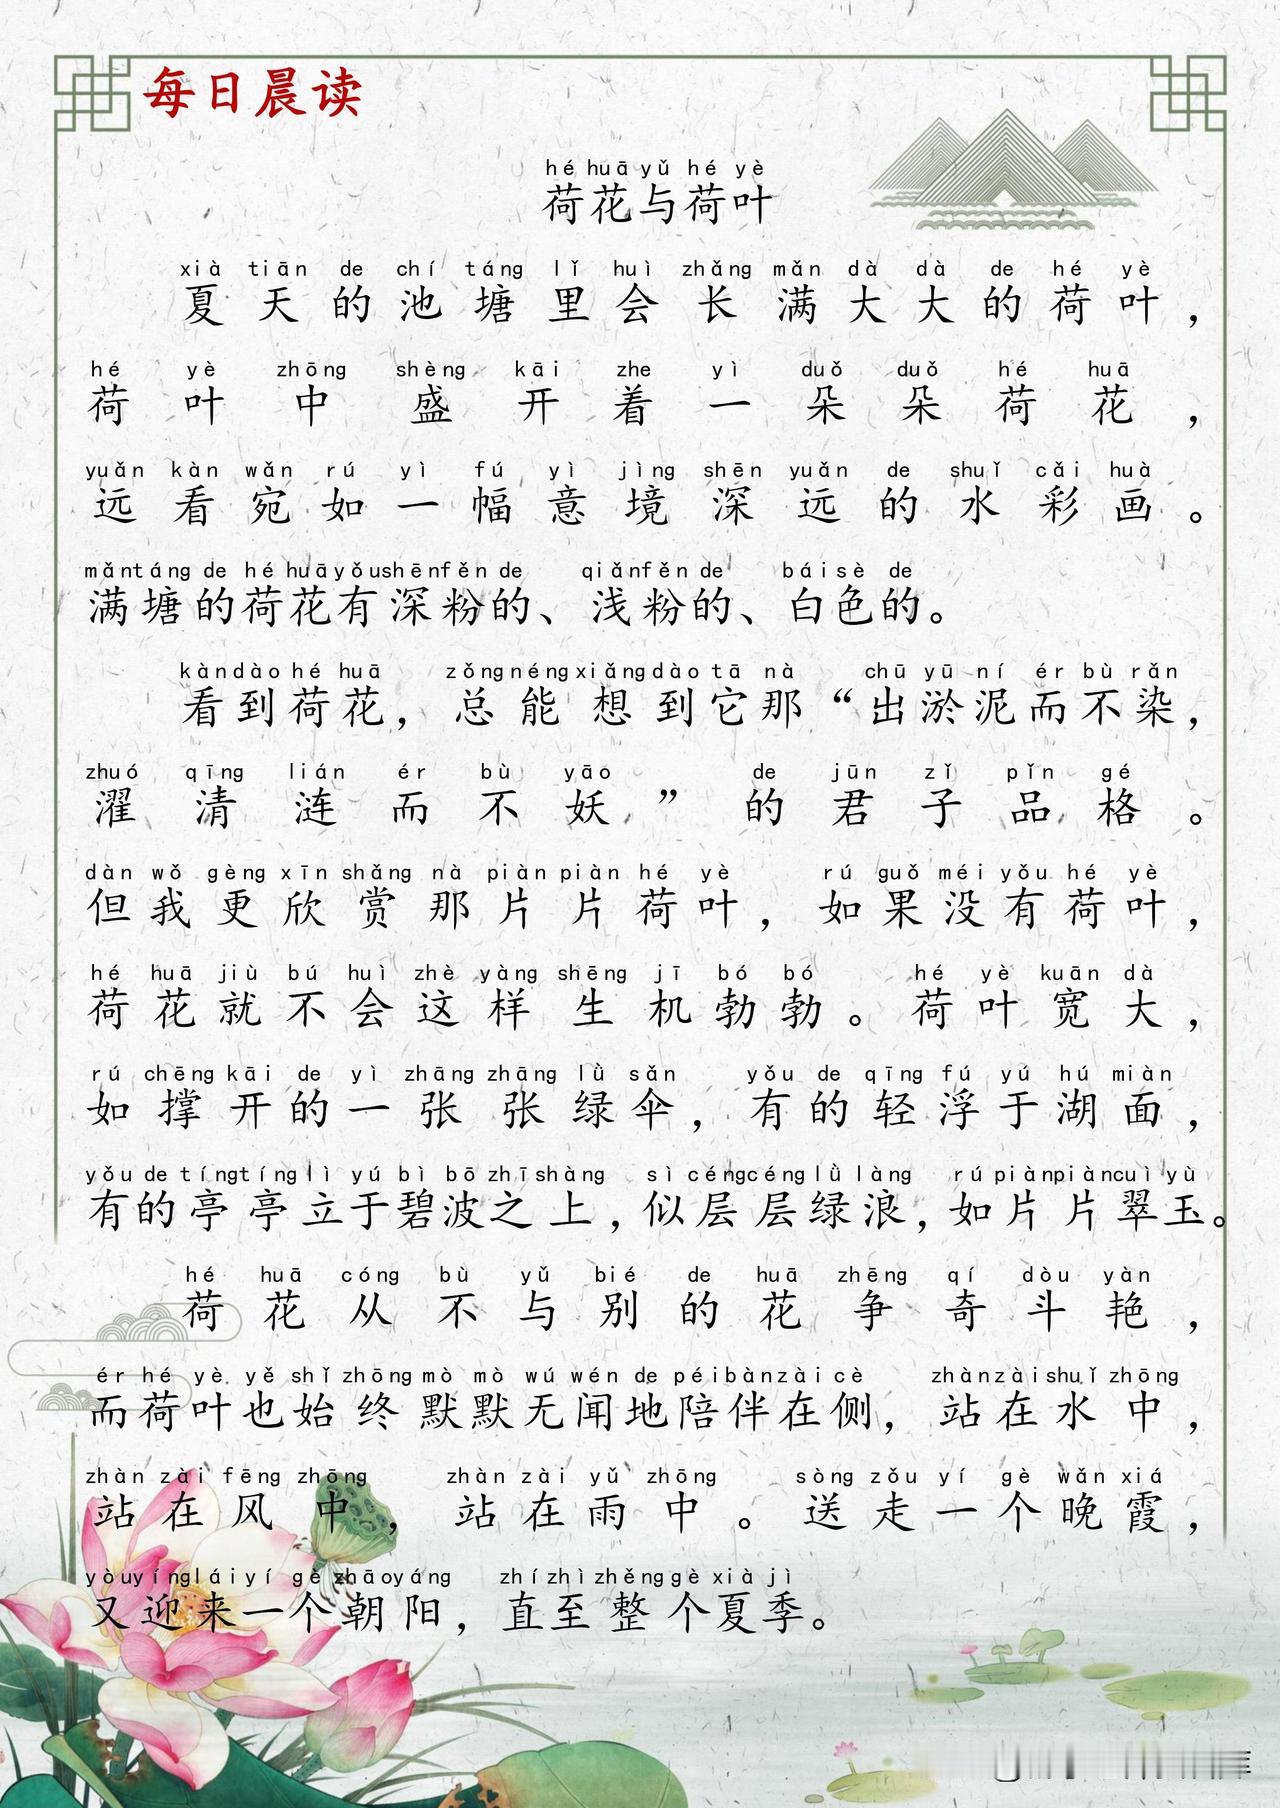 每日晨读
hé huā yǔ hé yè
荷花与荷叶
xià tiān de chí táng lǐ huì zhǎng mǎn dà dà de hé yè
夏天的池塘里会长满大大的荷叶，
hé yè zhōng shèng kāi zhe yì duǒ duǒ hé huā
荷叶中盛开着一朵朵荷花，
yuǎn kàn wǎn rú yì fú yì jìng shēn yuǎn de shuǐ cǎi huà
远看宛如一幅意境深远的水彩画。
mǎn táng de hé huā yǒu shēn fěn de qiǎn fěn de bái sè de
满塘的荷花有深粉的、浅粉的、白色的。
kàn dào hé huā zǒng néng xiǎng dào tā nà chū yū ní ér bù rǎn
看到荷花，总能想到它那“出淤泥而不染，
zhuó qīng lián ér bù yāo de jūn zǐ pǐn gé
濯清涟而不妖”的君子品格。
dàn wǒ gèng xīn shǎng nà piàn piàn hé yè rú guǒ méi yǒu hé yè
但我更欣赏那片片荷叶，如果没有荷叶，
hé huā jiù bú huì zhè yàng shēng jī bó bó hé yè kuān dà
荷花就不会这样生机勃勃。荷叶宽大，
rú chēng kāi de yì zhāng zhāng lǜ sǎn yǒu de qīng fú yú hú miàn
如撑开的一张张绿伞，有的轻浮于湖面，
yǒu de tíng tíng lì yú bì bō zhī shàng sì céng céng lǜ làng rú piàn piàn cuì yù
有的亭亭立于碧波之上，似层层绿浪，如片片翠玉。
hé huā cóng bù yǔ bié de huā zhēng qí dòu yàn
荷花从不与别的花争奇斗艳，
ér hé yè yě shǐ zhōng mò mò wú wén de péi bàn zài cè zhàn zài shuǐ zhōng
而荷叶也始终默默无闻地陪伴在侧，站在水中，
zhàn zài fēng zhōng zhàn zài yǔ zhōng sòng zǒu yí gè wǎn xiá
站在风中，站在雨中。送走一个晚霞，
yòu yíng lái yí gè zhāo yáng zhí zhì zhěng gè xià jì
又迎来一个朝阳，直至整个夏季。